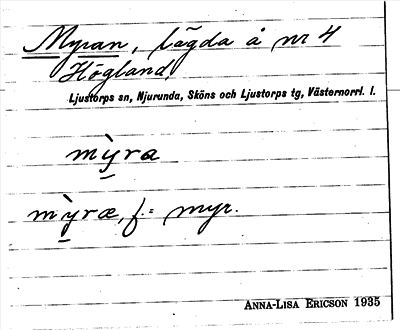 Myran, lägda å nr 4
Högland,
Ljustorps sn, Njurunda, Sköns och Ljustorps tg, Västernorrl. l.
mỳra
mỳræ, f. = myr.
ANNA-LISA ERICSON 1935